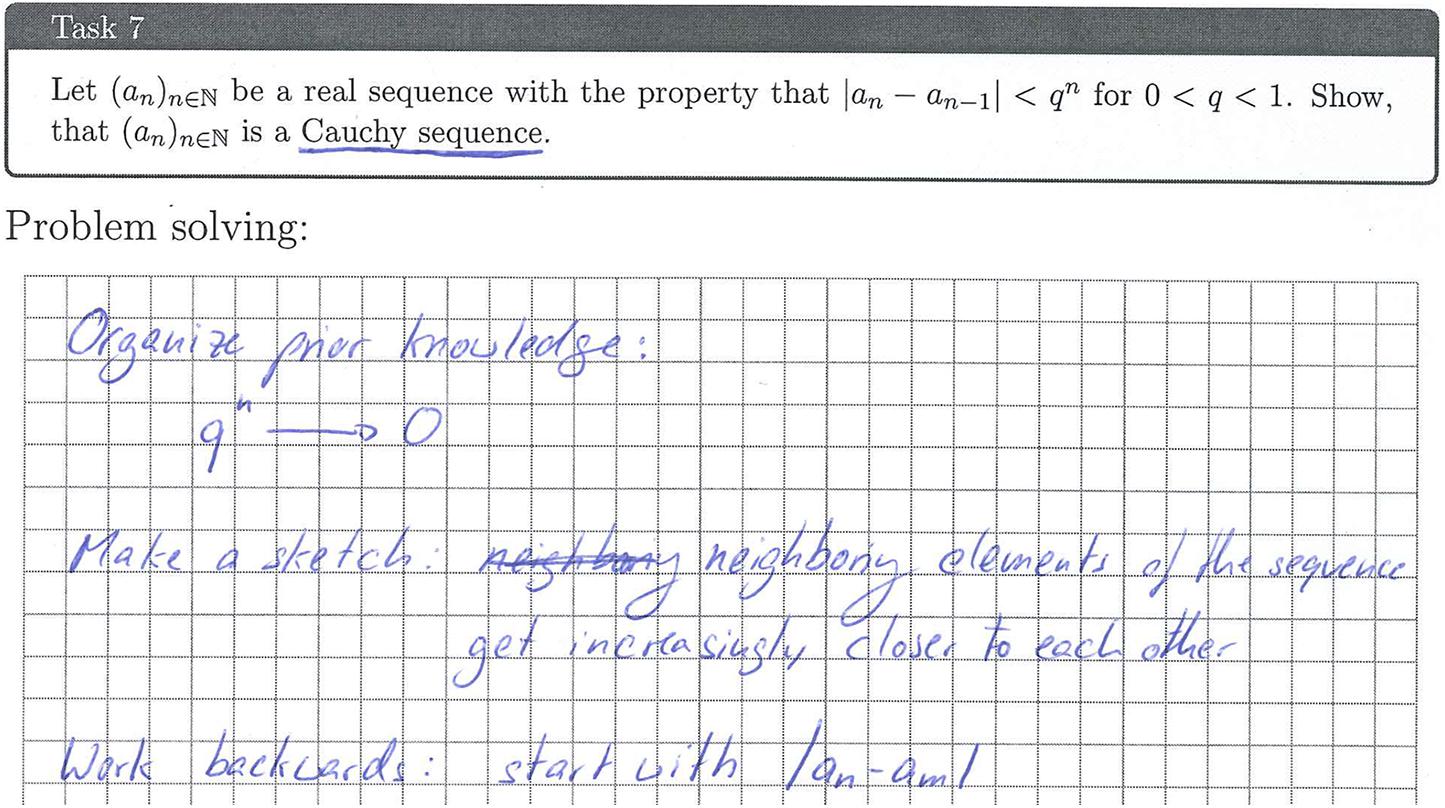 Task 7
Let (aₙ)ₙ∈ℕ be a real sequence with the property that |aₙ − aₙ₋₁| < qⁿ for 0 < q < 1. Show,
that (aₙ)ₙ∈ℕ is a Cauchy sequence.
Problem solving:
Organize prior knowledge:
qⁿ ⟶ 0
Make a sketch: neighbory neighboring elements of the sequence
get increasingly closer to each other
Work backwards: start with |aₙ-aₘ|